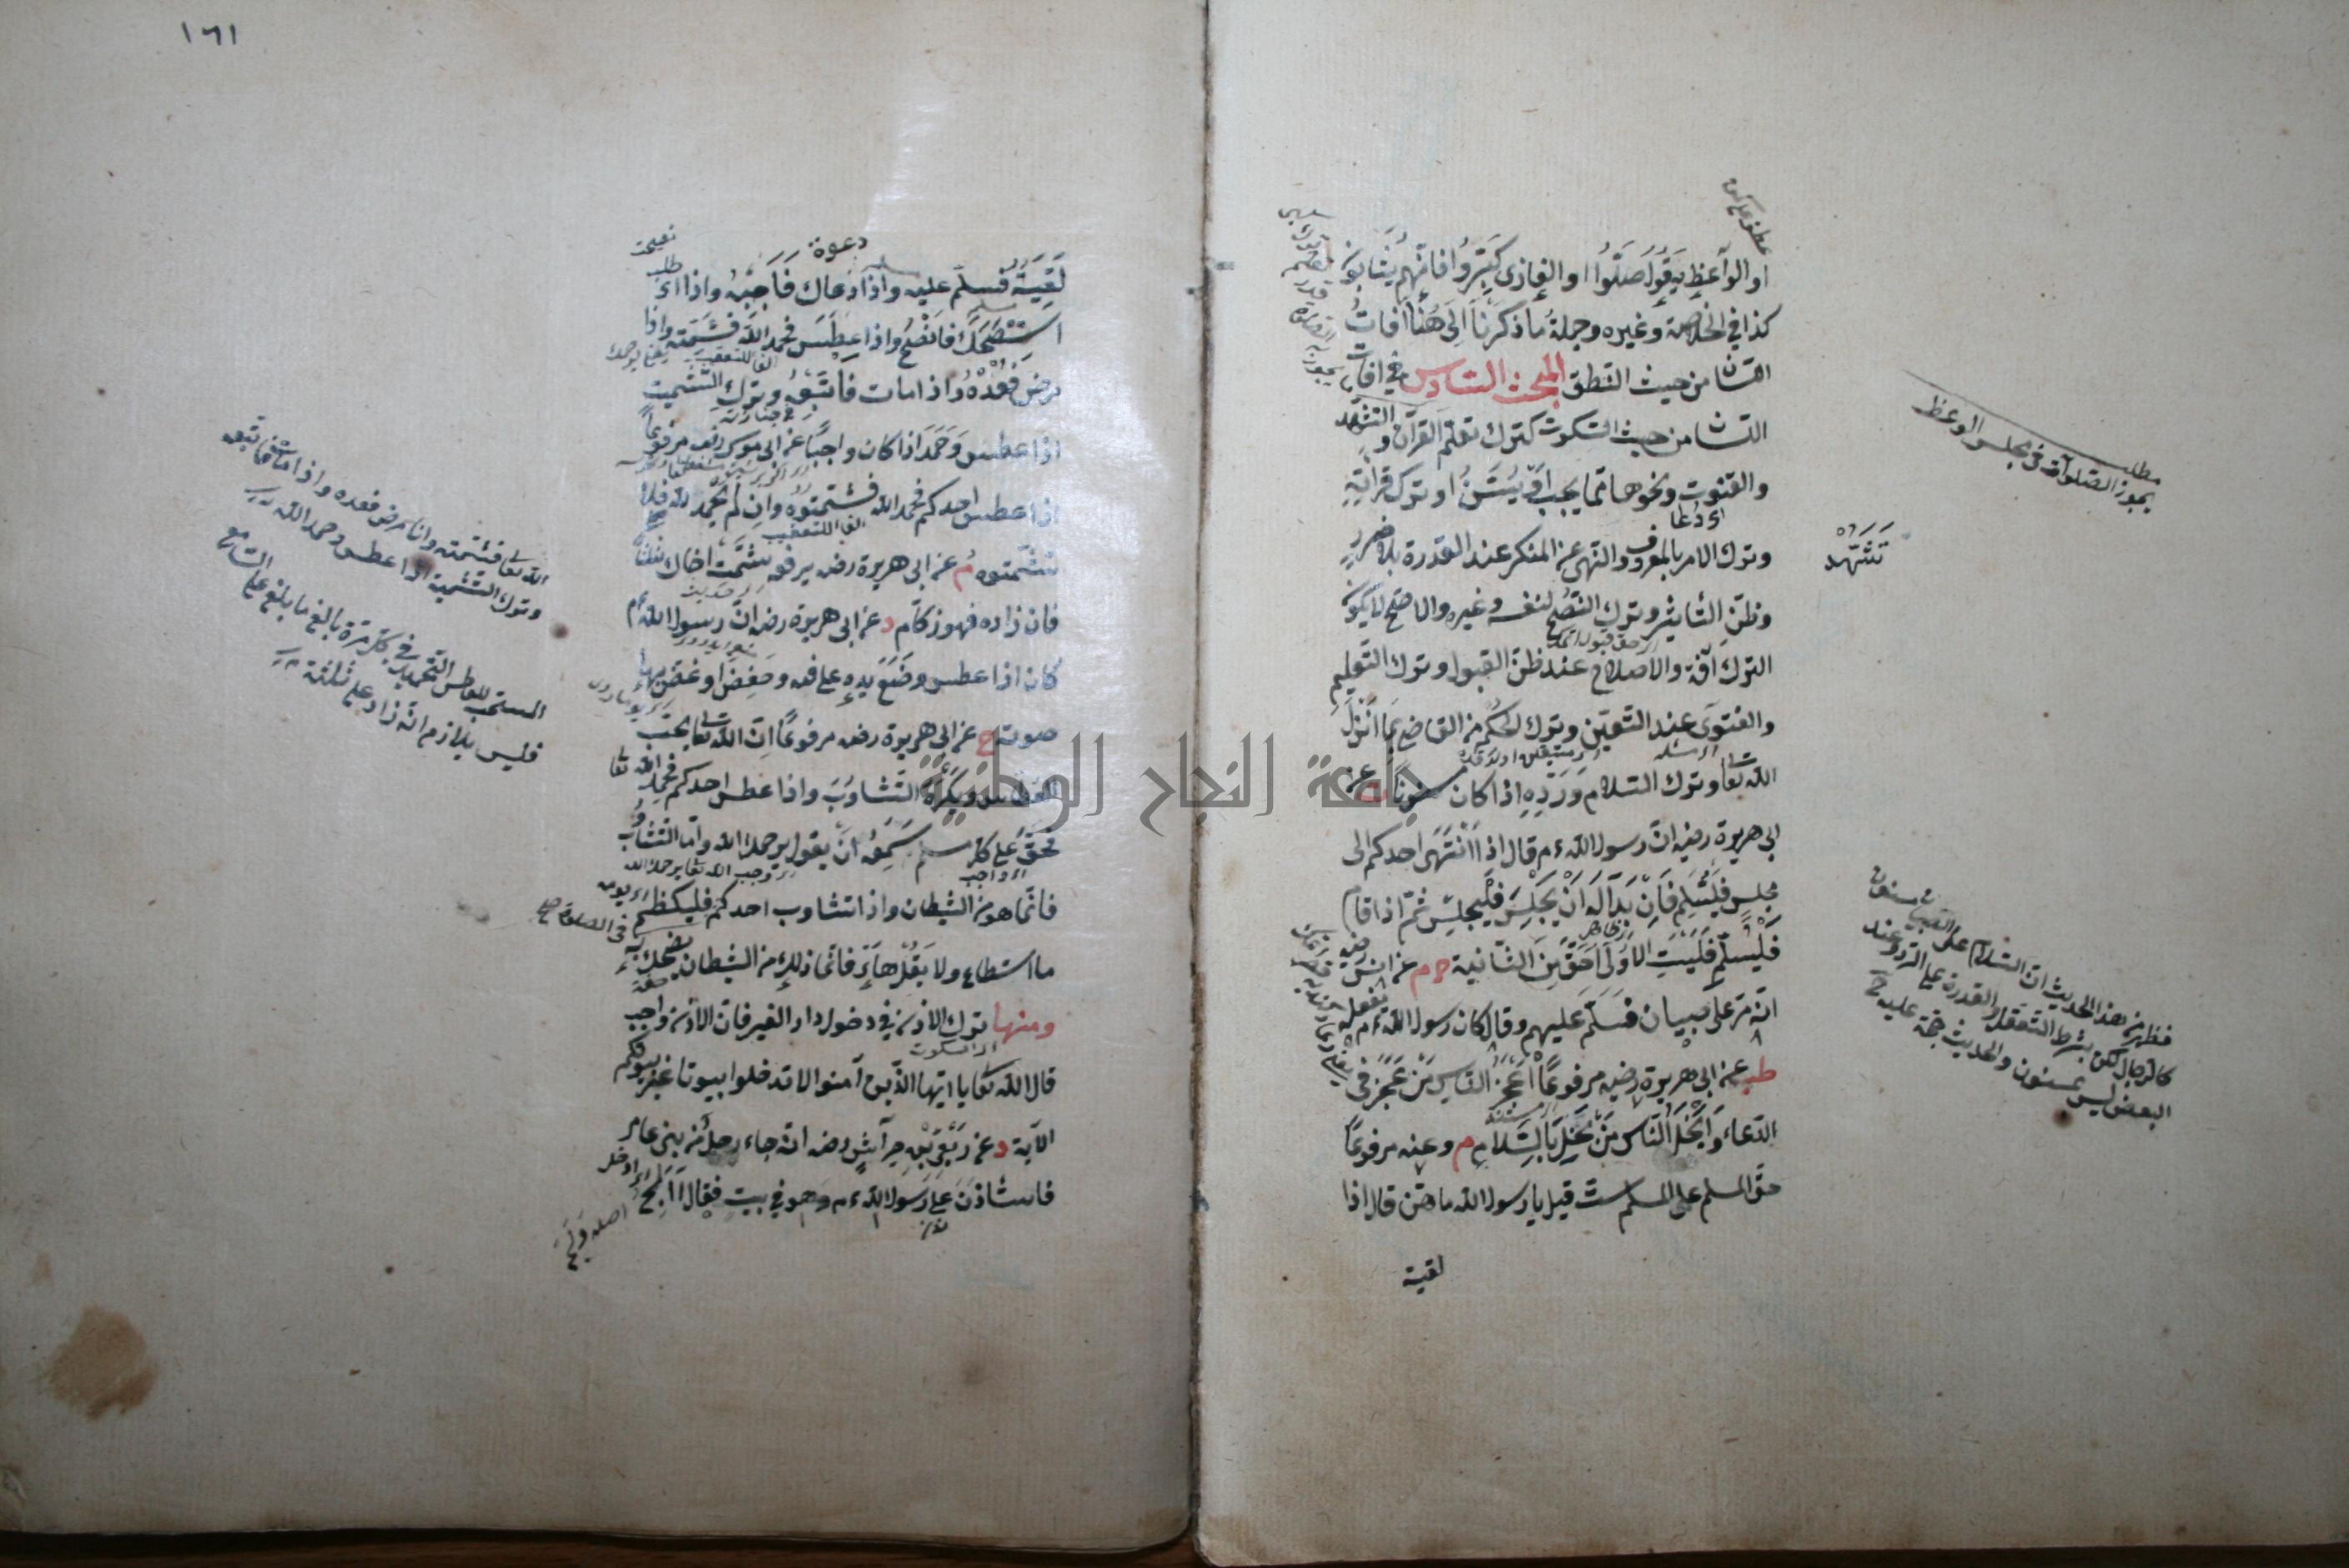 او الواعظ يقول صلوا او الغازى كبروا فانهم يثابون
كذا في الخلاصة وغيره وجملة ما ذكرنا الى هنا آفات
اللسان من حيث النطق المبحث السادس في آفات
اللسان من حيث السكوت كترك تعلم القرآن والتشهد
والقنوت ونحوها مما يجب او يسن او ترك قرائته
وترك الامر بالمعروف والنهى عن المنكر عند القدرة بلا ضرر
وظن التاثير وترك النصح لنفسه وغيره والاصح لا يكون
الترك آفة والاصلاح عند ظن القبول وترك التعليم
والفتوى عند التعين وترك الحكم من القاضي بما انزل
الله تعا وترك السلام ورده اذا كان مسنونا عن
ابى هريرة رضه ان رسول الله ءم قال اذا انتهى احدكم الى
مجلس فليسلم فان بدا له ان يجلس فليجلس ثم اذا قام
فليسلم فليست الاولى احق من الثانية خ م عن انس رضه
انه مر على صبيان فسلم عليهم وقال كان رسول الله ءم يفعله
طب عن ابى هريرة رضه مرفوعا اعجز الناس من عجز في
الدعاء وابخل الناس من بخل بالسلام م وعنه مرفوعا
حق المسلم على المسلم ست قيل يا رسول الله ما هن قال اذا
لقيته
مطلب
يجوز الصلوات فى مجلس الوعظ
تشهد
فظهر من هذا الحديث ان السلام على الصبيان مسنون
كالرجال لكن بشرط التعقل والقدرة على الرد وعند
البعض ليس بمسنون والحديث حجة عليه
١٦١
دعوة
لقيته فسلم عليه واذا دعاك فاجبه واذا
استنصحك فانصح واذا عطس فحمد الله فشمته واذا
مرض فعده واذا مات فاتبعه وترك التشميت
اذا عطس وحمد اذا كان واجبا عن ابى موسى رضه مرفوعا
اذا عطس احدكم فحمد الله فشمتوه وان لم يحمد لله فلا
تشمتوه م عن ابى هريرة رضه يرفعه شمت اخاك ثلثا
فان زاده فهو زكام د عن ابى هريرة رضه ان رسول الله ءم
كان اذا عطس وضع يده على فمه وخفض او غض بها
صوته خ عن ابى هريرة رضه مرفوعا ان الله تعا يحب
العطاس ويكره التثاوب واذا عطس احدكم فحمد الله تعا
فحق على كل مسلم سمعه ان يقول يرحمك الله واما التثاوب
فانما هو من الشيطان واذا تثاوب احدكم فليكظم
ما استطاع ولا يقل هاء فانما ذلك من الشيطان يضحك
ومنها ترك الاذن في دخول دار الغير فان الاذن واجب
قال الله تعا يا ايها الذين آمنوا لا تدخلوا بيوتا غير بيوتكم
الآية د عن ربعى بن حراش رضه انه جاء رجل من بنى عامر
فاستاذن على رسول الله ءم وهو في بيت فقال أألج
الله تعا فشمته واذا مرض فعده واذا مات فاتبعه
وترك التشميت اذا عطس وحمد الله
المستحب للعاطس التحميد في كل مرة بالغ ما بلغ على السامع
فليس بلازم انه زاد على ثلثة
جامعة النجاح الوطنية